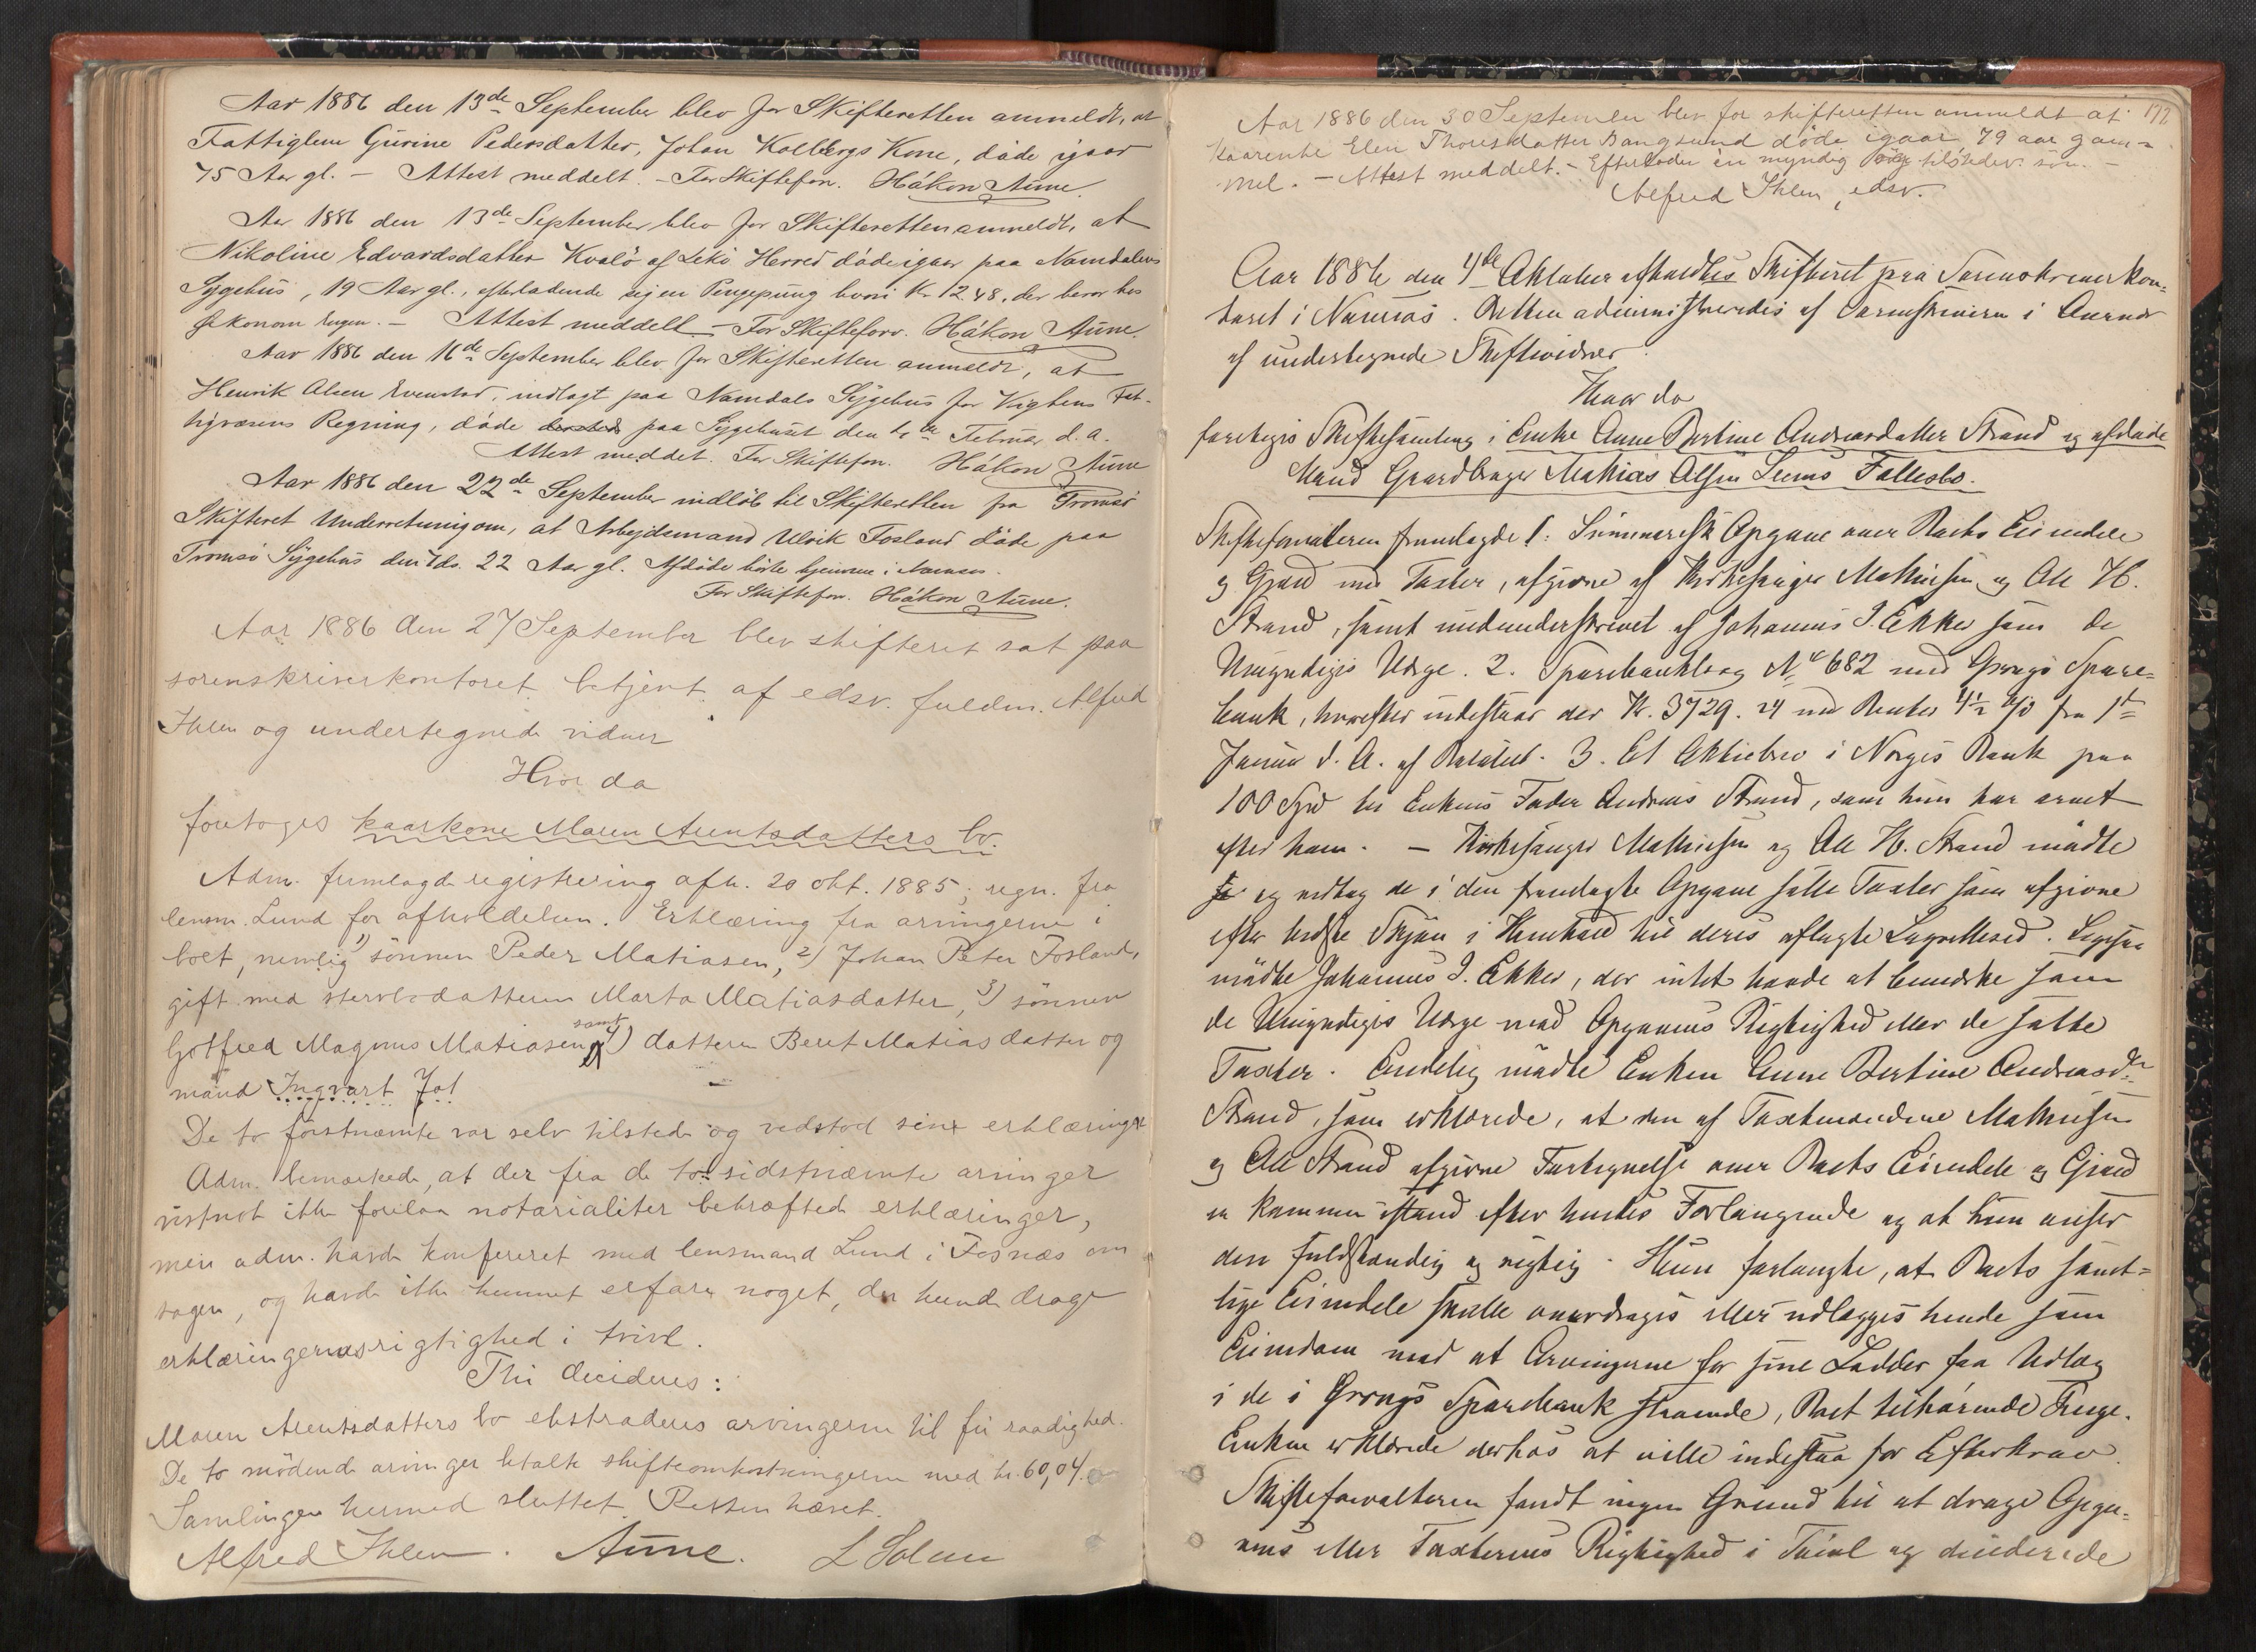 Aar 1886 den 13de September blev for Skifteretten anmeldt, at
Fattiglem Gurine Pedersdatter, Johan Kolbergs Kone, døde igaar
75 Aar gl. – Attest meddelt. – For Skiftefon. Håkon Aune.
Aar 1886 den 13de September blev for Skifteretten anmeldt, at
Nikoline Edvardsdatter Kvalö af Lekö Herred døde igaar paa Namdalens
Sygehus, 19 Aar gl., efterladende sig en Pengepung hvori Kr. 12.48, der beror hos
Økonom Eugen. – Attest meddelt – For Skifteforv. Håkon Aune.
Aar 1886 den 16de September blev for Skifteretten anmeldt, at
Henrik Olsen Evenstad, indlagt paa Namdals Sygehus for Vigtens Fat-
tigvæsens Regning, døde paa Sygehuset den Februar d. a.
Attest meddet. For Skiftefon. Håkon Aune
Aar 1886 den 22de September indløb til Skifteretten fra Tromsö
Skifteret Underretning om, at Arbejdsmand Ulrik Fosland døde paa
Tromsö Sygehus den 7ds. 22 Aar gl. Afdöde hörte hjemme i Namsos.
For Skiftefon. Håkon Aune.
Aar 1886 den 27 September blev skifteret sat paa
sorenskriverkontoret betjent af edsv. fuldm. Alfred
Ihlen og undertegnede vidner
Hvor da
foretoges kaarkone Maren Arentsdatters bo.
Adm. fremlagde registrering afh. 20 okt. 1885; regn. fra
lensm. Lund for afholdelsen. Erklæring fra arvingerne i
boet, nemlig 1) sönnen Peder Matiasen, 2) Johan Peter Fosland,
gift med stervbodatteren Marta Matiasdatter, 3) sönnen
Gotfred Magnus Matiasen samt 4) datteren Beret Matiasdatter og
mand Ingvart Jo!
De to förstnæmte var selv tilstede og vedstod sine erklæringer
Adm. bemærkede, at der fra de to sidstnæmte arvinger
vistnok ikke forelaa notarialiter bekræftede erklæringer,
men adm. havde konfereret med lensmand Lund i Fosnæs om
sagen, og havde ikke kunnet erfare noget, der kunde drage
erklæringernes rigtighed i tvivl.
Thi decideres:
Maren Arentsdatters bo ekstraderes arvingerne til fri raadighed.
De to mödende arvinger betalte skifteomkostningerne med kr. 60,04.
Samlingen hermed sluttet. Retten hævet.
Alfred Ihlen. Aune. L Solum
172
Aar 1886 den 30 September blev for skifteretten anmeldt at
kaarenke Elen Thoresdatter Bangsund döde igaar 79 aar gam-
mel. – Attest meddelt. – Efterlader en myndig tilstedev. sön. –
Alfred Ihlen, edsv.
Aar 1886 den 4de Oktober afholdtes Skifteret paa Sorenskriverkon-
toret i Namsos. Retten administreredes af Sorenskriveren i Overvær
af undertegnede Skiftevidner.
Hvor da
foretoges Skiftesamling i Enke Anne Bertine Andreasdatter Strand og afdöde
Mand Gaardbruger Mathias Olsen Seems Fællesbo.
Skifteforvalteren fremlagde 1. Summarisk Opgave over Boets Eiendele
og Gjæld med Taxter, afgivne af Kirkesanger Mathiesen og Ole H.
Strand, samt medunderskrevet af Johannes I. Ekker som de
Umyndiges Værge. 2. Sparebankbog No 682 med Grongs Spare-
bank, hvorefter indestaar der Kr. 3729.24 med Renter 4½ % fra 1ste
Januar d. A. af Belöbet. 3. Et Aktiebrev i Norges Bank paa
100 Spd til Enkens Fader Andreas Strand, som hun har arvet
efter ham. – Kirkesanger Mathiesen og Ole H. Strand mödte
og vedtog de i den fremlagte Opgave satte Taxter som afgivne
efter bedste Skjön i Henhold til deres aflagte Lagrettesed. Ligesaa
mödte Johannes I. Ekker, der intet havde at bemærke som
de Umyndiges Værge mod Opgavens Rigtighed eller de satte
Taxter. Endelig mödte Enken Anne Bertine Andreasdtr
Strand, som erklærede, at den af Taxtmændene Mathiesen
og Ole Strand afgivne Fortegnelse over Boets Eiendele og Gjæld
er kommen istand efter hendes Forlangende og at hun anser
den fuldstændig og rigtig. Hun forlangte, at Boets samt-
lige Eiendele skulle overdrages eller udlægges hende som
Eiendom mod at Arvingerne for sine Lodder faa Udlæg
i de i Grongs Sparebank staaende, Boet tilhörende Penge.
Enken erklærede derhos at ville indestaa for Efterkrav.
Skifteforvalteren fandt ingen Grund til at drage Opga-
vens eller Taxternes Rigtighed i Tvivl og deciderede